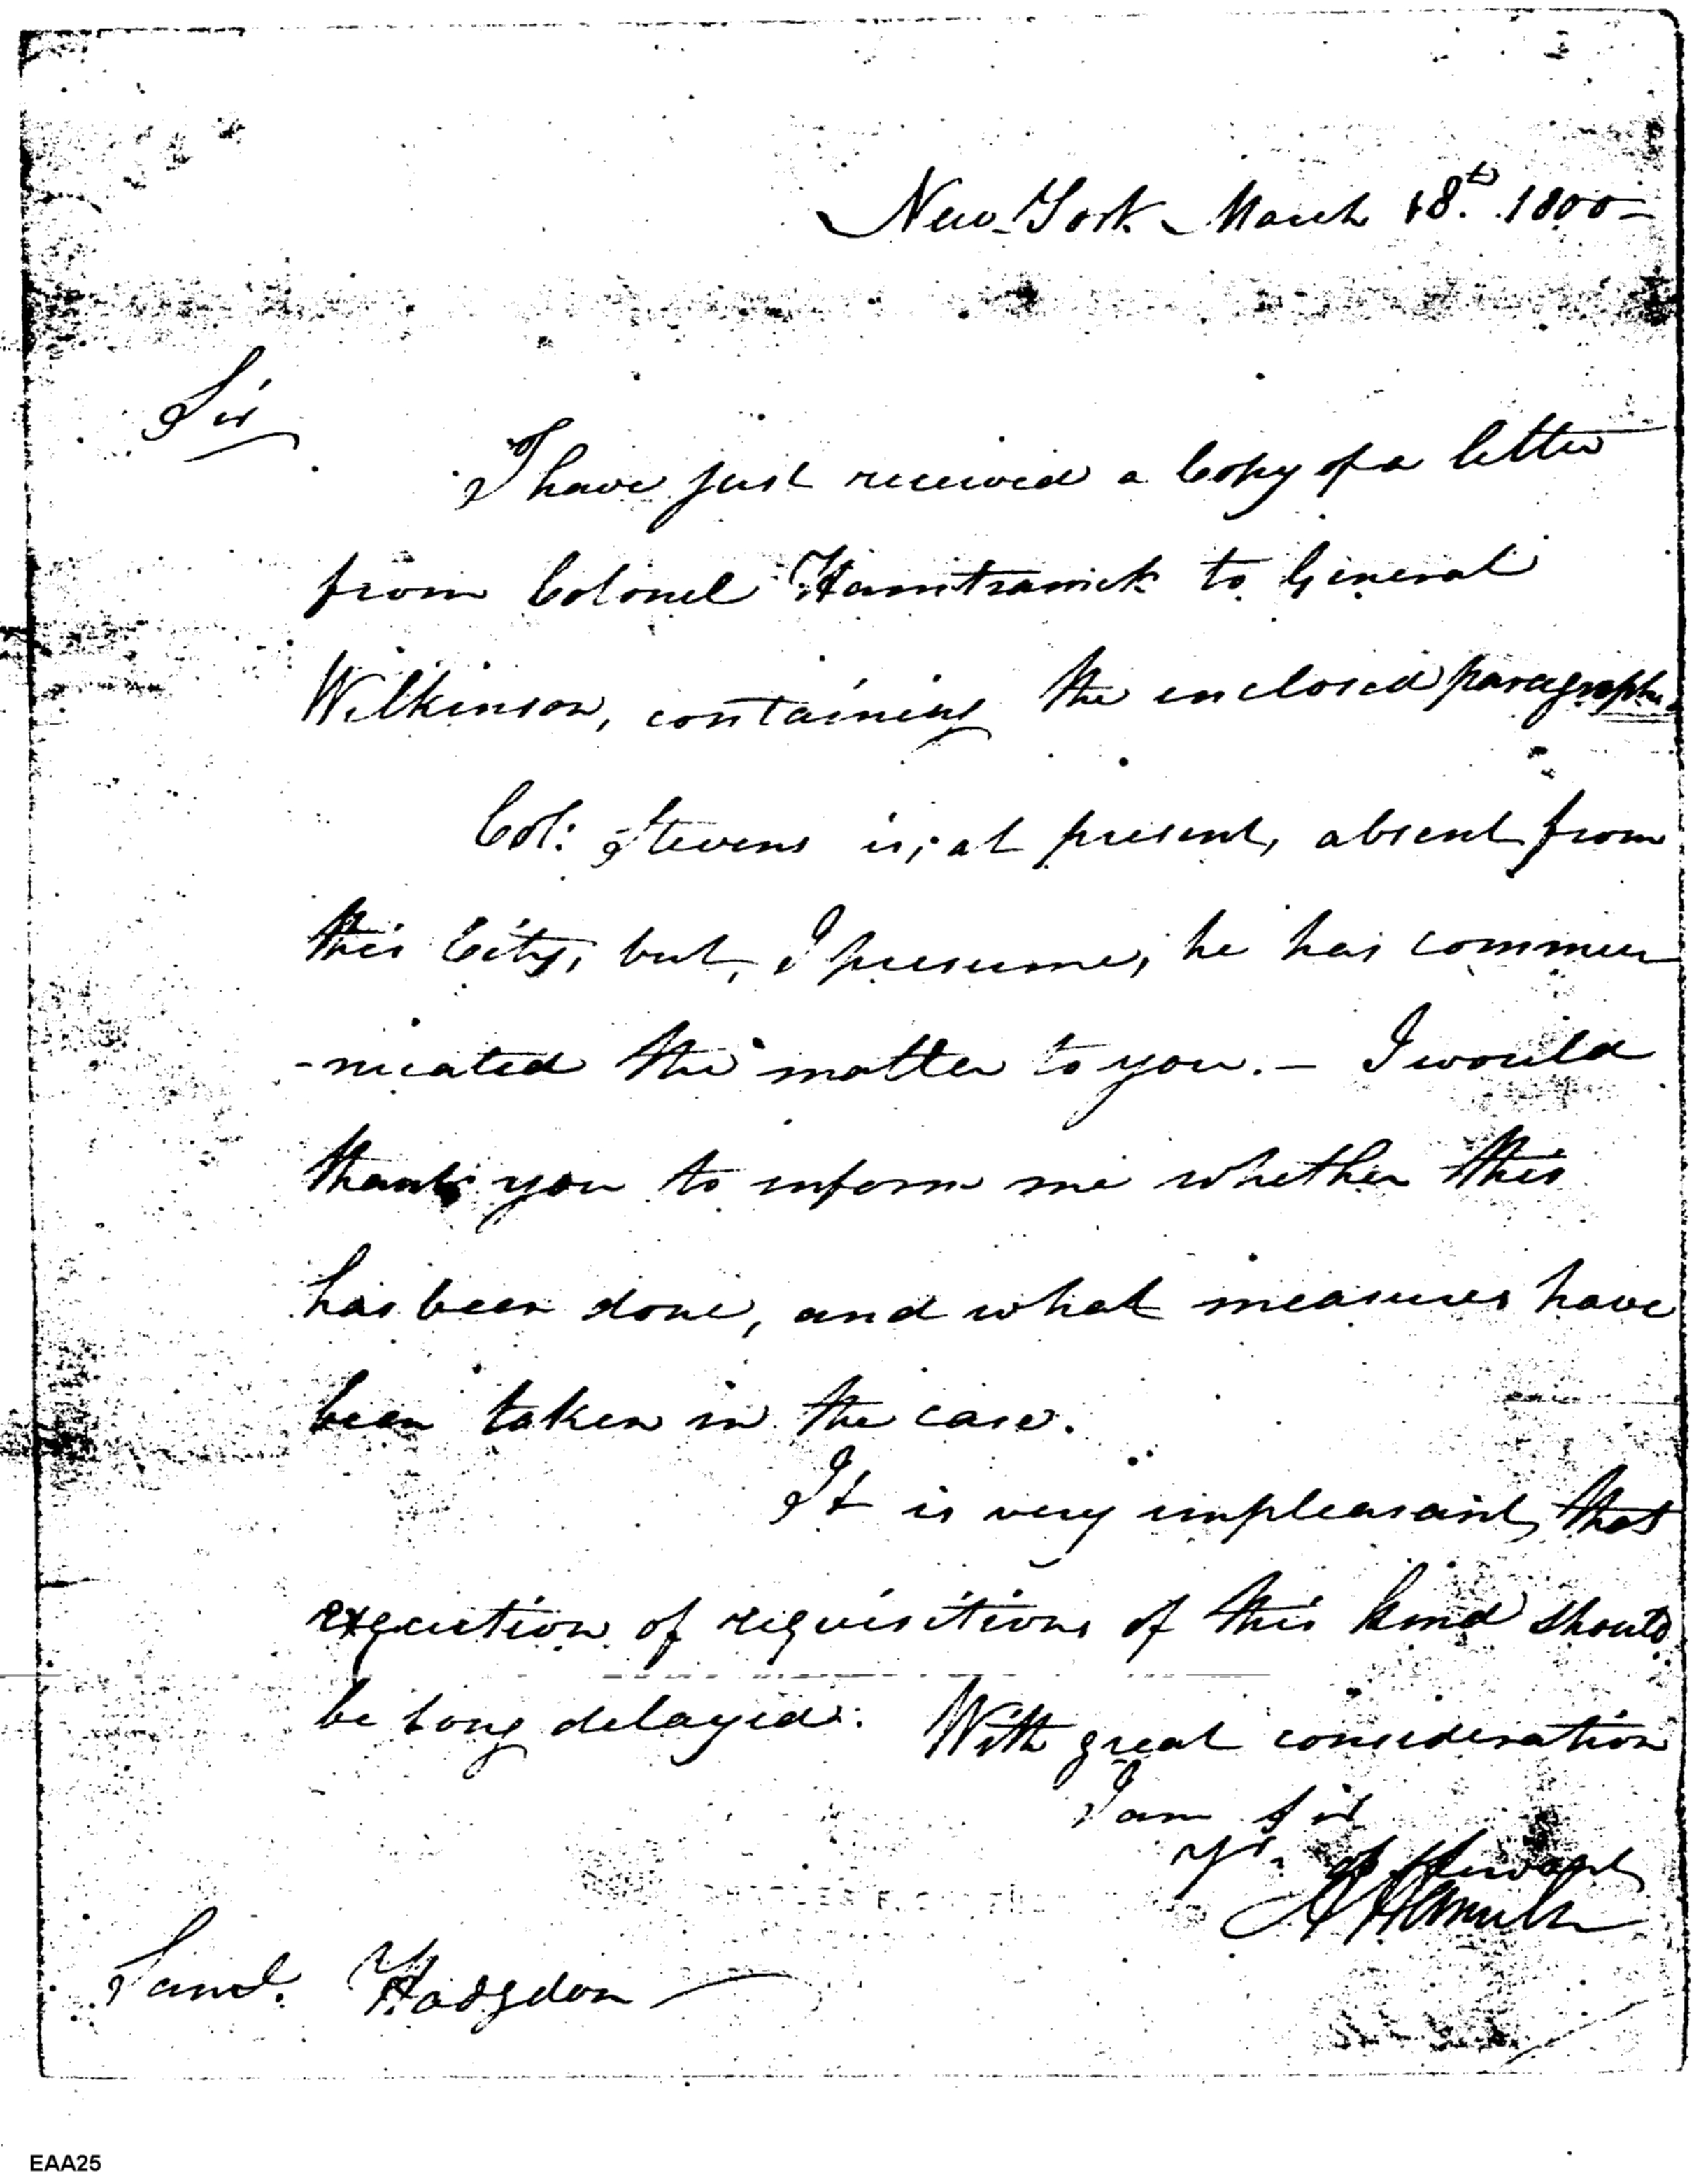 New-York March 18th. 1800-
Sir
I have just received a Copy of a letter
from Colonel Hamtramck to General
Wilkinson, containing the enclosed paragraph.
Col: Stevens is, at present, absent from
this City, but, I presume, he has commu
-nicated the matter to you.- I would
thank you to inform me whether this
has been done, and what measures have
been taken in the case.
It is very unpleasant, that
execution of requisitions of this kind should
be long delayed. With great consideration
I am Sir
Yr. ob Servant
A Hamilton
Saml. Hodgdon
EAA25